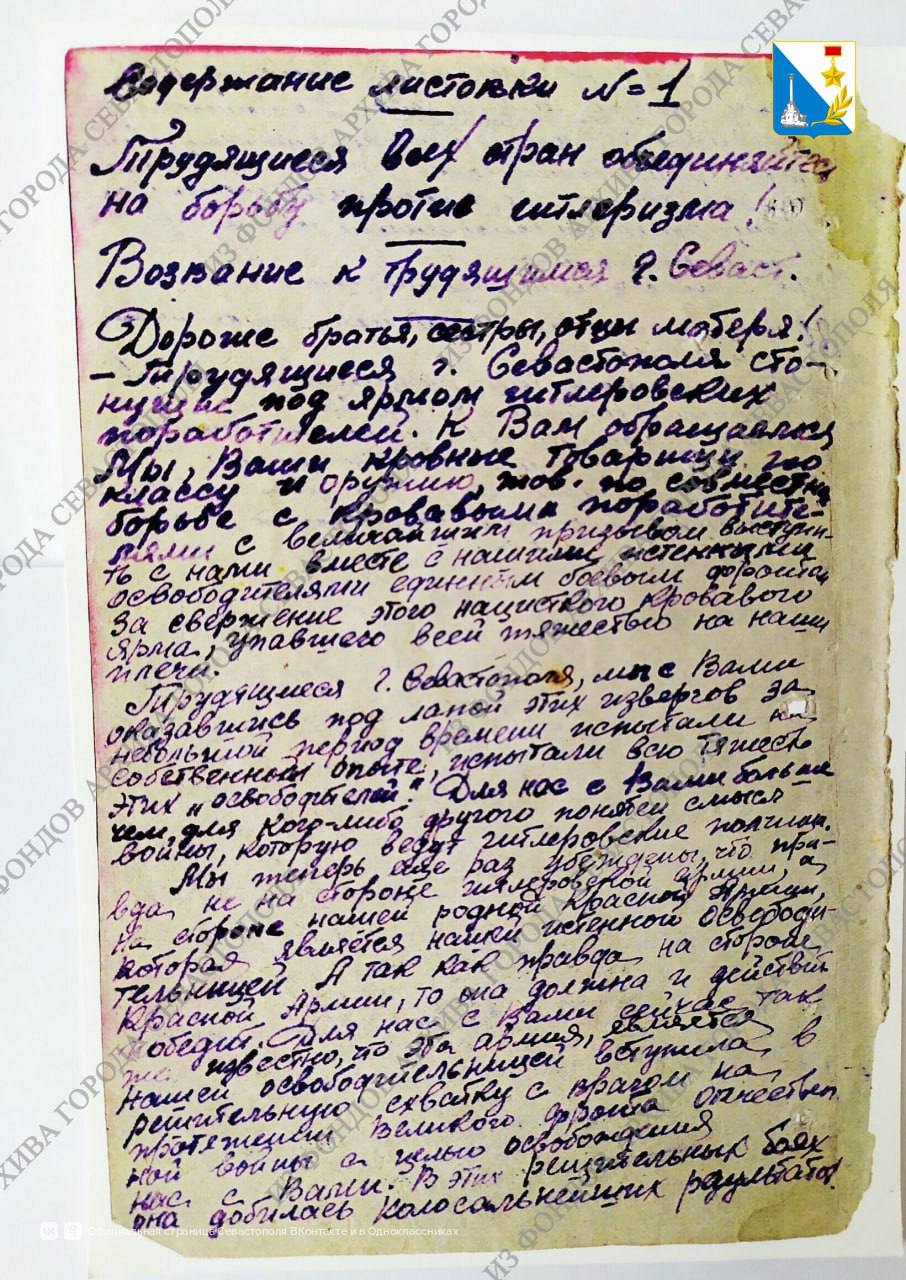 Содержание листовки N=1
Трудящиеся всех стран объединяйтесь
на борьбу против гитлеризма!
Воззвание к трудящимся г. Севаст.
Дороже братья, сестры, отцы матеря!
– Трудящиеся г. Севастополя сто-
нущие под ярмом гитлеровских
поработителей. К Вам обращаемся
Мы, Ваши кровные товарищи по
классу и оружию, тов. по совместн
борьбе с кровавыми поработите-
лями с величайшим призывом выступи-
ть с нами вместе с нашими истенными
освободителями единным боевым фронтом
за свержение этого нацисткого кровавого
ярма, упавшего всей тяжестью на наши
плечи.
Трудящиеся г. Севастополя, мы с Вами
оказавшись под лапой этих извергов за
небольшой период времени испытали на
собственном опыте, испытали всю тяжесть
этих "освободителей". Для нас с Вами больше
чем для кого-либо другого понятен смысл
войны, которую ведут гитлеровские полчища.
Мы теперь еще раз убеждены, что пра-
вда не на стороне гитлеровской армии, а
на стороне нашей родной Красной Армии,
которая является нашей истенной освободи-
тельницей. А так как правда на стороне
Красной Армии, то она должна и действит
победит. Для нас с Вами сейчас так
же известно, что эта армия, является
нашей освободительницей вступила в
решительную схватку с врагом на
протяжении великого фронта отечествен
ной войны с целью освобождения
нас с Вами. В этих решительных боях
она добилась колосальнейших результатов.
Официальная страница Севастополя ВКонтакте и в Одноклассниках
ИЗ ФОНДОВ АРХИВА ГОРОДА СЕВАСТОПОЛЯ